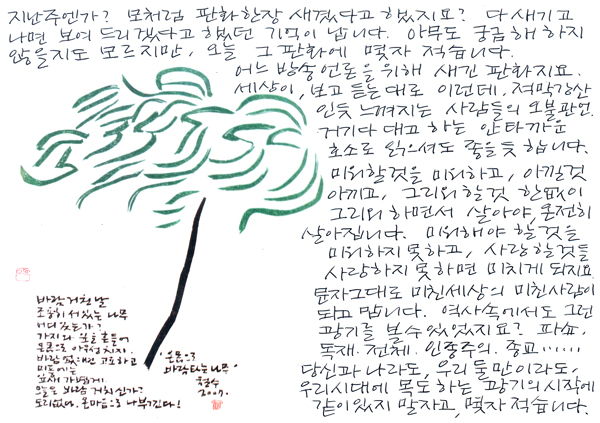 지난주엔가? 모처럼 판화한장 새겼다고 했지요? 다 새기고
나면 보여 드리겠다고 했던 기억이 납니다. 아무도 궁금해 하지
않을지도 모르지만, 오늘 그 판화에 몇자 적습니다.
어느 방송언론을 위해 새긴 판화지요.
세상이, 보고 듣는대로 이런데, 적막강산
인듯 느껴지는 사람들의 오불관언.
거기다 대고 하는 안타까운
호소로 읽으셔도 좋을듯 합니다.
미워할것을 미워하고, 아낄것
아끼고, 그리워할것 한없이
그리워하면서 살아야, 온전히
살아집니다. 미워해야 할것을
미워하지 못하고, 사랑할것을
사랑하지 못하면 미치게 되지요.
문자그대로 미친세상의 미친사람이
되고 맙니다. 역사속에서도 그런
광기를 볼수 있었지요? 파쇼.
독재. 전체. 인종주의. 종교……
당신과 나라도, 우리 둘만이라도,
우리시대에 목도하는 광기의 시작에
같이있지 말자고, 몇자 적습니다.
바람 거친날
조용히 서있는 나무
어디 있는가?
가지와 잎을 흔들어
온몸으로 아우성치지.
바람 없
오늘은 바람 거치신가?
도리없다. 온마음으로 나부긴다!
"온몸으로
바람타는나무"
철수
2009.